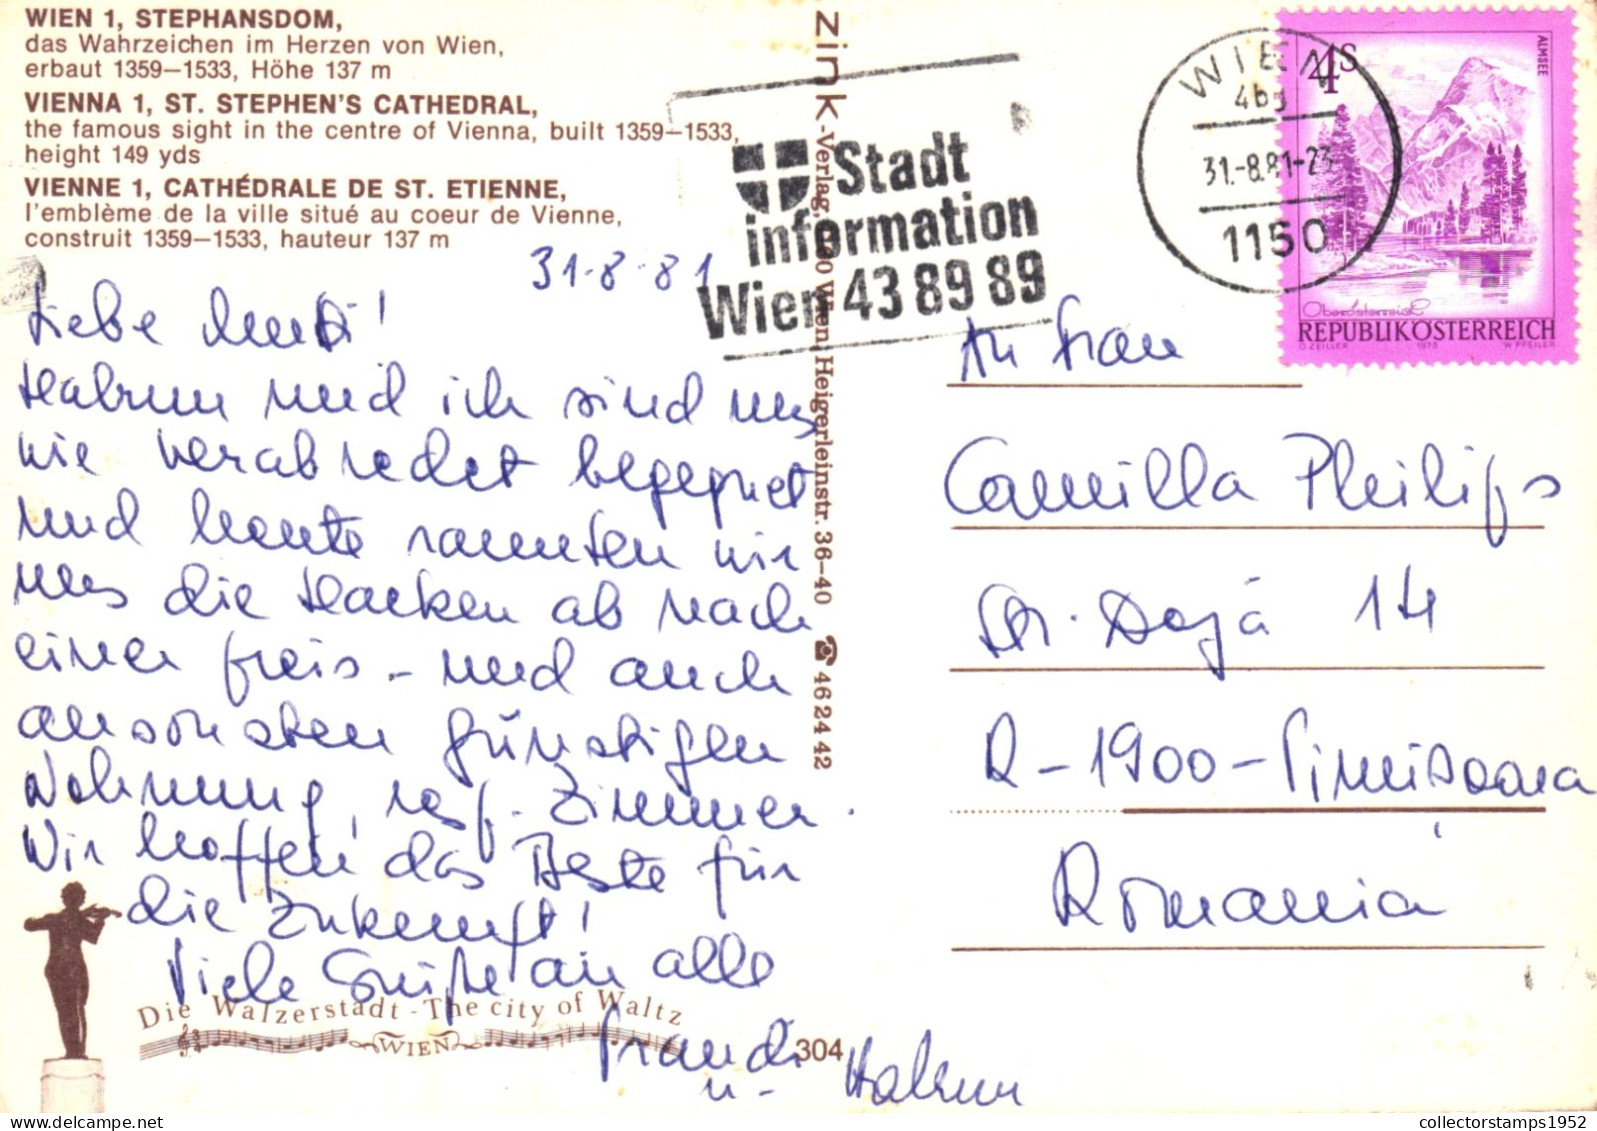 WIEN 1, STEPHANSDOM,
das Wahrzeichen im Herzen von Wien,
erbaut 1359–1533, Höhe 137 m
VIENNA 1, ST. STEPHEN'S CATHEDRAL,
the famous sight in the centre of Vienna, built 1359–1533,
height 149 yds
VIENNE 1, CATHÉDRALE DE ST. ETIENNE,
l'emblème de la ville situé au coeur de Vienne,
construit 1359–1533, hauteur 137 m
31-8-81
Liebe
und ich sind uns
wie verabredet begegnet
und heute rannten wir
uns die Hacken ab nach
einer preis- und auch
ansonsten günstigen
Wohnung, resp. Zimmer.
Wir hoffen das Beste für
die Zukunft!
Viele Grüße an alle
u.
Die Walzerstadt - The city of Waltz
WIEN
304
zink-Verlag, Wien, Heigerleinstr. 36–40 ☎ 46 24 42
Stadt
information
Wien 43 89 89
WIEN
31.-8.81-23
1150
4S
ALMSEE
Oberösterreich
REPUBLIK ÖSTERREICH
O. ZEILLER 1973 W. PFEILER
An Frau
Camilla Philips
Str. Doja 14
R-1900-Timisoara
Romania
collectorstamps1952